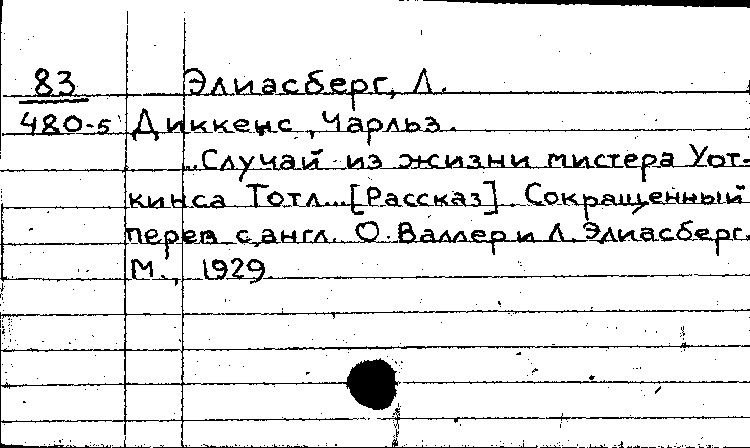 83 Элиасберг, Л.
480-5 Диккенс, Чарльз.
...Случай из жизни мистера Уот-
кинса Тотл...[Рассказ]. Сокращенный
перев с англ. О. Валлер и Л. Элиасберг.
М., 1929